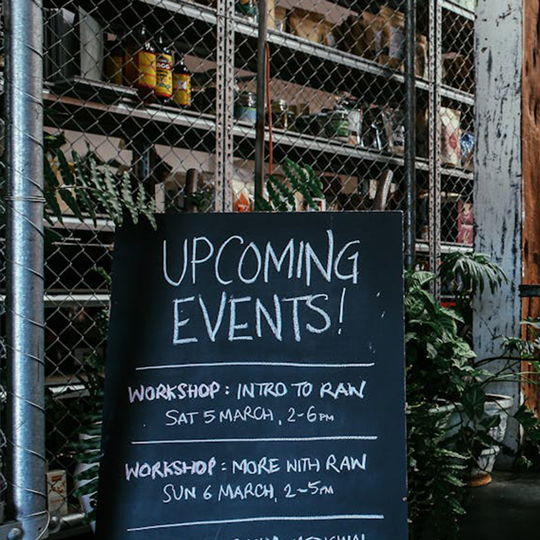 UPCOMING
EVENTS!
WORKSHOP: INTRO TO RAW
SAT 5 MARCH, 2-6PM
WORKSHOP: MORE WITH RAW
SUN 6 MARCH, 2-5PM